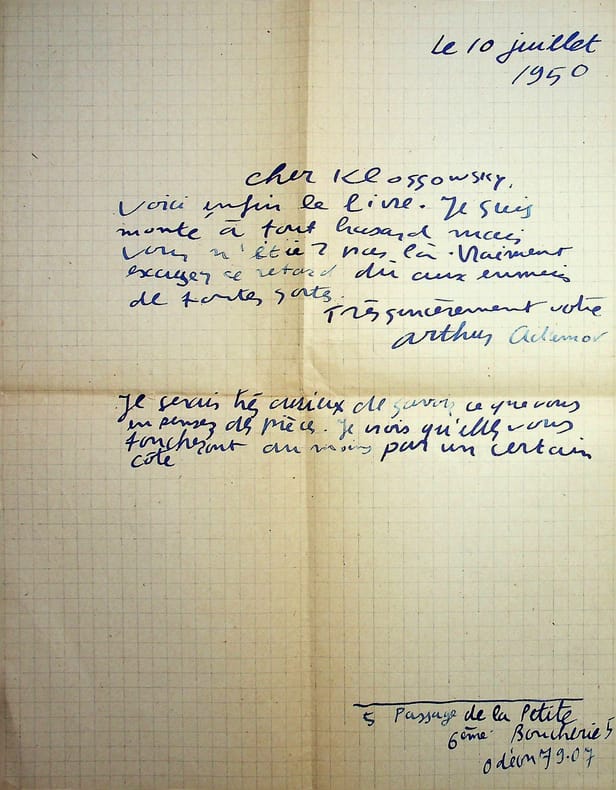 le 10 juillet
1950
cher Klossowsky,
Voici enfin le livre. Je suis
monté à tout hasard mais
vous n'étiez pas là. Vraiment
excusez ce retard dû aux ennuis
de toutes sortes.
Très sincèrement votre
Arthur Adamov
Je serais très curieux de savoir ce que vous
en pensez des pièces. Je crois qu'elles vous
toucheront au moins par un certain
côté
5 Passage de la Petite
6ème Boucherie 5
Odéon 79.07